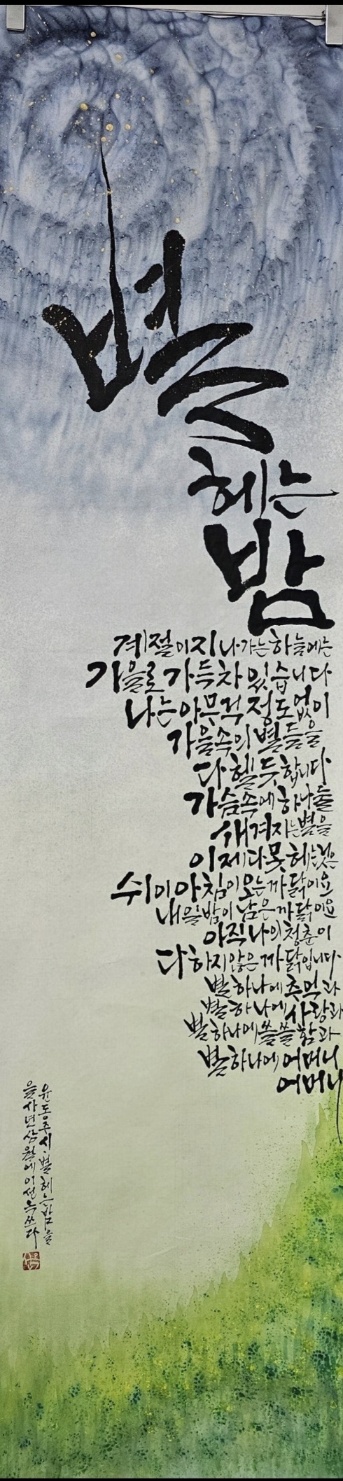 별
헤는
밤
계절이 지나가는 하늘에는
가을로 가득 차 있습니다
나는 아무 걱정도 없이
가을 속의 별들을
다 헬 듯합니다
가슴 속에 하나 둘
새겨지는 별을
이제 다 못 헤는 것은
쉬이 아침이 오는 까닭이요
내일 밤이 남은 까닭이요
아직 나의 청춘이
다하지 않은 까닭입니다
별 하나에 추억과
별 하나에 사랑과
별 하나에 쓸쓸함과
별 하나에 어머니
어머니
윤동주 시 별 헤는 밤을
을사년 삼월에 쓰다